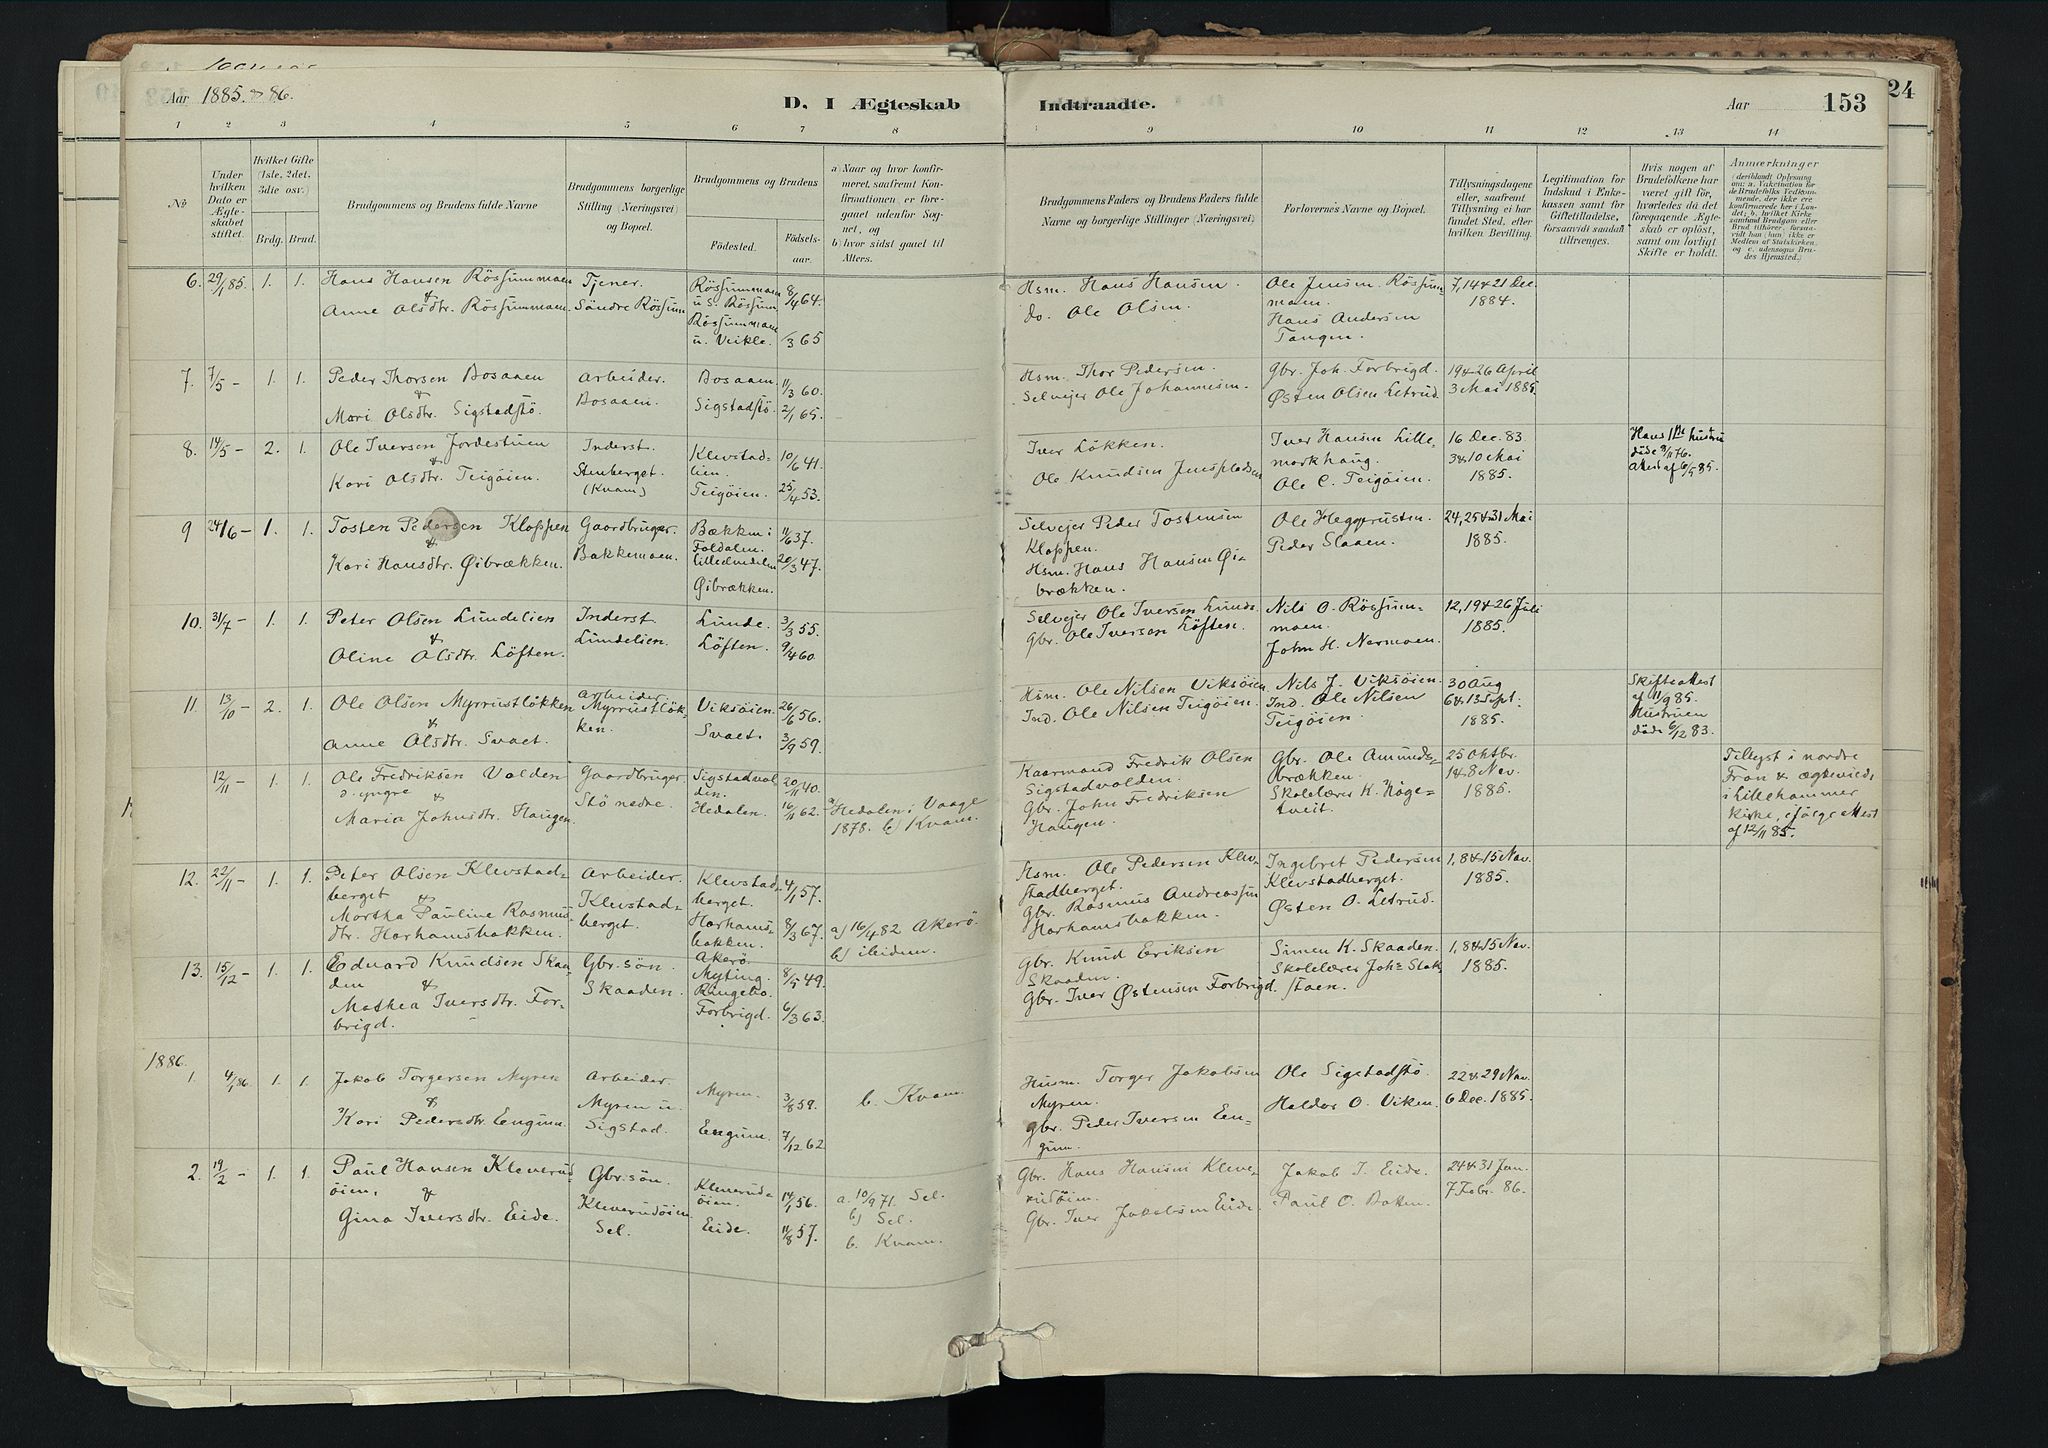 Aar 1885 & 86.
D. I Ægteskab
Indtraadte.
Aar
153
24
1 2 3 4 5 6 7 8 9 10 11 12 13 14
No
Under hvilken Dato er Ægteskabet stiftet.
Hvilket Gifte (1ste, 2det, 3die osv.)
Brdg. Brud.
Brudgommens og Brudens fulde Navne
Brudgommens borgerlige Stilling (Næringsvei) og Bopæl.
Brudgommens og Brudens
Fødested.
Fødselsaar.
a) Naar og hvor konfirmeret, saafremt Konfirmationen er foregaaet udenfor Sognet, og
b) hvor sidst gaaet til Alters.
Brudgommens Faders og Brudens Faders fulde Navne og borgerlige Stillinger (Næringsvei)
Forlovernes Navne og Bopæl.
Tillysningsdagene eller, saafremt Tillysning ei har fundet Sted, efter hvilken Bevilling.
Legitimation for Indskud i Enkekassen samt for Giftetilladelse, forsaavidt saadan tiltrenges.
Hvis nogen af Brudefolkene har været gift før, hvorledes da det foregaaende Ægteskab er opløst, samt om lovligt Skifte er holdt.
Anmærkninger (deriblandt Oplysning om: a. Vakcination for de Brudefolks Vedkommende, der ikke ere konfirmerede her i Landet; b. hvilket Kirkesamfund Brudgom eller Brud tilhører, forsaavidt han (hun) ikke er Medlem af Statskirken, og c. udensogns Brudes Hjemsted.)
6. 29/1 85. 1. 1. Hans Hansen Rössummoen & Anne Olsdtr. Rössummoen.
Tjener. Söndre Rössum
Rössummoen u. S. Rössum. 8/4 64.
Rössummoen u. Veikle. /3 65
Hsm. Hans Hansen.
do. Ole Olsen.
Ole Jensen Rössummoen.
Hans Andersen Tangen.
7, 14 & 21 Dec. 1884.
7. 7/5 – 1. 1. Peder Thorsen Bosaaen & Mari Olsdtr. Sigstadstö.
Arbeider. Bosaaen.
Bosaaen. 11/3 60.
Sigstadstö. 2/1 65.
Hsm. Thor Pedersen.
Selvejer Ole Johannesen.
Gbr. Joh. Forbrigd.
Østen Olsen Letrud.
19 & 26 April 3 Mai 1885.
8. 14/5 – 2. 1. Ole Iversen Jordestuen & Kari Olsdtr. Teigöien.
Inderst. Stenberget. (Kvam)
Klevstadlien. 10/6 41.
Teigöien. 25/4 53.
Iver Løkken.
Ole Knudsen Jensplads
Iver Hansen Lillemorkhaug.
Ole C. Teigöien.
16 Dec. 83. 3 & 10 Mai 1885.
Hans 1ste hustru döde 3/11 76. Attest af 6/5 85.
9 24/6 – 1. 1. Tosten Pedersen Kloppen & Kari Hansdtr. Øibrækken.
Gaardbruger. Bakkemoen.
Bækken i Foldalen. 11/6 37.
Lilleelvedalen 20/3 47.
Øibrækken.
Selvejer Peder Tostensen Kloppen.
Hsm. Hans Hansen Øibrækken.
Ole Heggerusten.
Peder Slaaen.
24, 25 & 31 Mai 1885.
10. 31/7 – 1. 1. Peter Olsen Lundelien & Oline Olsdtr. Löften.
Inderst. Lundelien.
Lunde. 3/3 55.
Löften. 9/4 60.
Selvejer Ole Iversen Lunde.
Gbr. Ole Iversen Löften.
Nils O. Rössummoen.
John H. Nermoen.
12, 19 & 26 Juli 1885.
11. 13/10 – 2. 1. Ole Olsen Myrrustlökken & Anne Olsdtr. Svaet.
Arbeider Myrrustlökken.
Viksöien. 26/6 56.
Svaet. 3/9 59.
Hsm. Ole Nilsen Viksöien.
Ind. Ole Nilsen Teigöien.
Nils J. Viksöien.
Ind. Ole Nilsen Teigöien.
30 Aug 6 & 13 Sept. 1885.
Skifteattest af 11/9 85. Hustruen döde 6/12 83.
12/11 – 1. 1. Ole Fredriksen Volden d. yngre & Maria Johnsdtr. Haugen.
Gaardbruger. Stö nedre.
Sigstadvolden. 20/11 40.
Hedalen. 16/11 62.
a) Hedalen i Vaage 1878. b) Kvam.
Kaarmand Fredrik Olsen Sigstadvolden.
Gbr. John Fredriksen Haugen.
Gbr. Ole Amundsbrækken.
Skolelærer K. Högetveit.
25 Oktbr. 1 & 8 Nov. 1885.
Tillyst i nordre Fron & ægteviede i Lillehammer kirke, ifölge attest af 12/11 85.
12. 22/11 – 1. 1. Peter Olsen Klevstadberget & Martha Pauline Rasmusdtr. Horhamsbakken.
Arbeider. Klevstadberget.
Klevstadberget. 4/1 57.
Horhamsbakken. Akerö 8/3 67.
a) 16/4 82 Akerö. b) ibidem.
Hsm. Ole Pedersen Klevstadberget.
Gbr. Rasmus Andreassen Horhamsbakken.
Ingebret Pedersen Klevstadberget.
Østen O. Letrud.
1, 8 & 15 Nov. 1885.
13. 15/12 – 1. 1. Eduard Knudsen Skaaden & Mathea Iversdtr. Forbrigd.
Gbr.sön. Skaaden.
Myting. Ringebo. 8/5 49.
Forbrigd. 6/3 63.
Gbr. Knud Eriksen Skaaden.
Gbr. Iver Østensen Forbrigd.
Simen K. Skaaden.
Skolelærer Johs Slaastaen.
1, 8 & 15 Nov. 1885.
1886.
1. 4/1 86. 1. 1. Jakob Torgersen Myren & Kari Pedersdtr. Engum.
Arbeider. Myren u. Sigstad.
Myren. 3/8 59.
Engum. 7/12 62
b. Kvam.
Husm. Torger Jakobsen Myren.
Gbr. Peder Iversen Engum.
Ole Sigstadstö.
Haldor O. Viken.
22 & 29 Nov. 6 Dec. 1885.
2. 19/2 – 1. 1. Paul Hansen Kleverudöien. & Gina Iversdtr. Eide.
Gbr.sön. Kleverudöien Sel.
Kleverudöien. 14/1 56.
Eide. 11/8 57.
a. 10/9 71. Sel. b) Sel.
b. Kvam.
Gbr. Hans Hansen Kleverudöien.
Gbr. Iver Jakobsen Eide.
Jakob I. Eide.
Paul O. Bakken.
24 & 31 Jan. 7 Febr. 86.